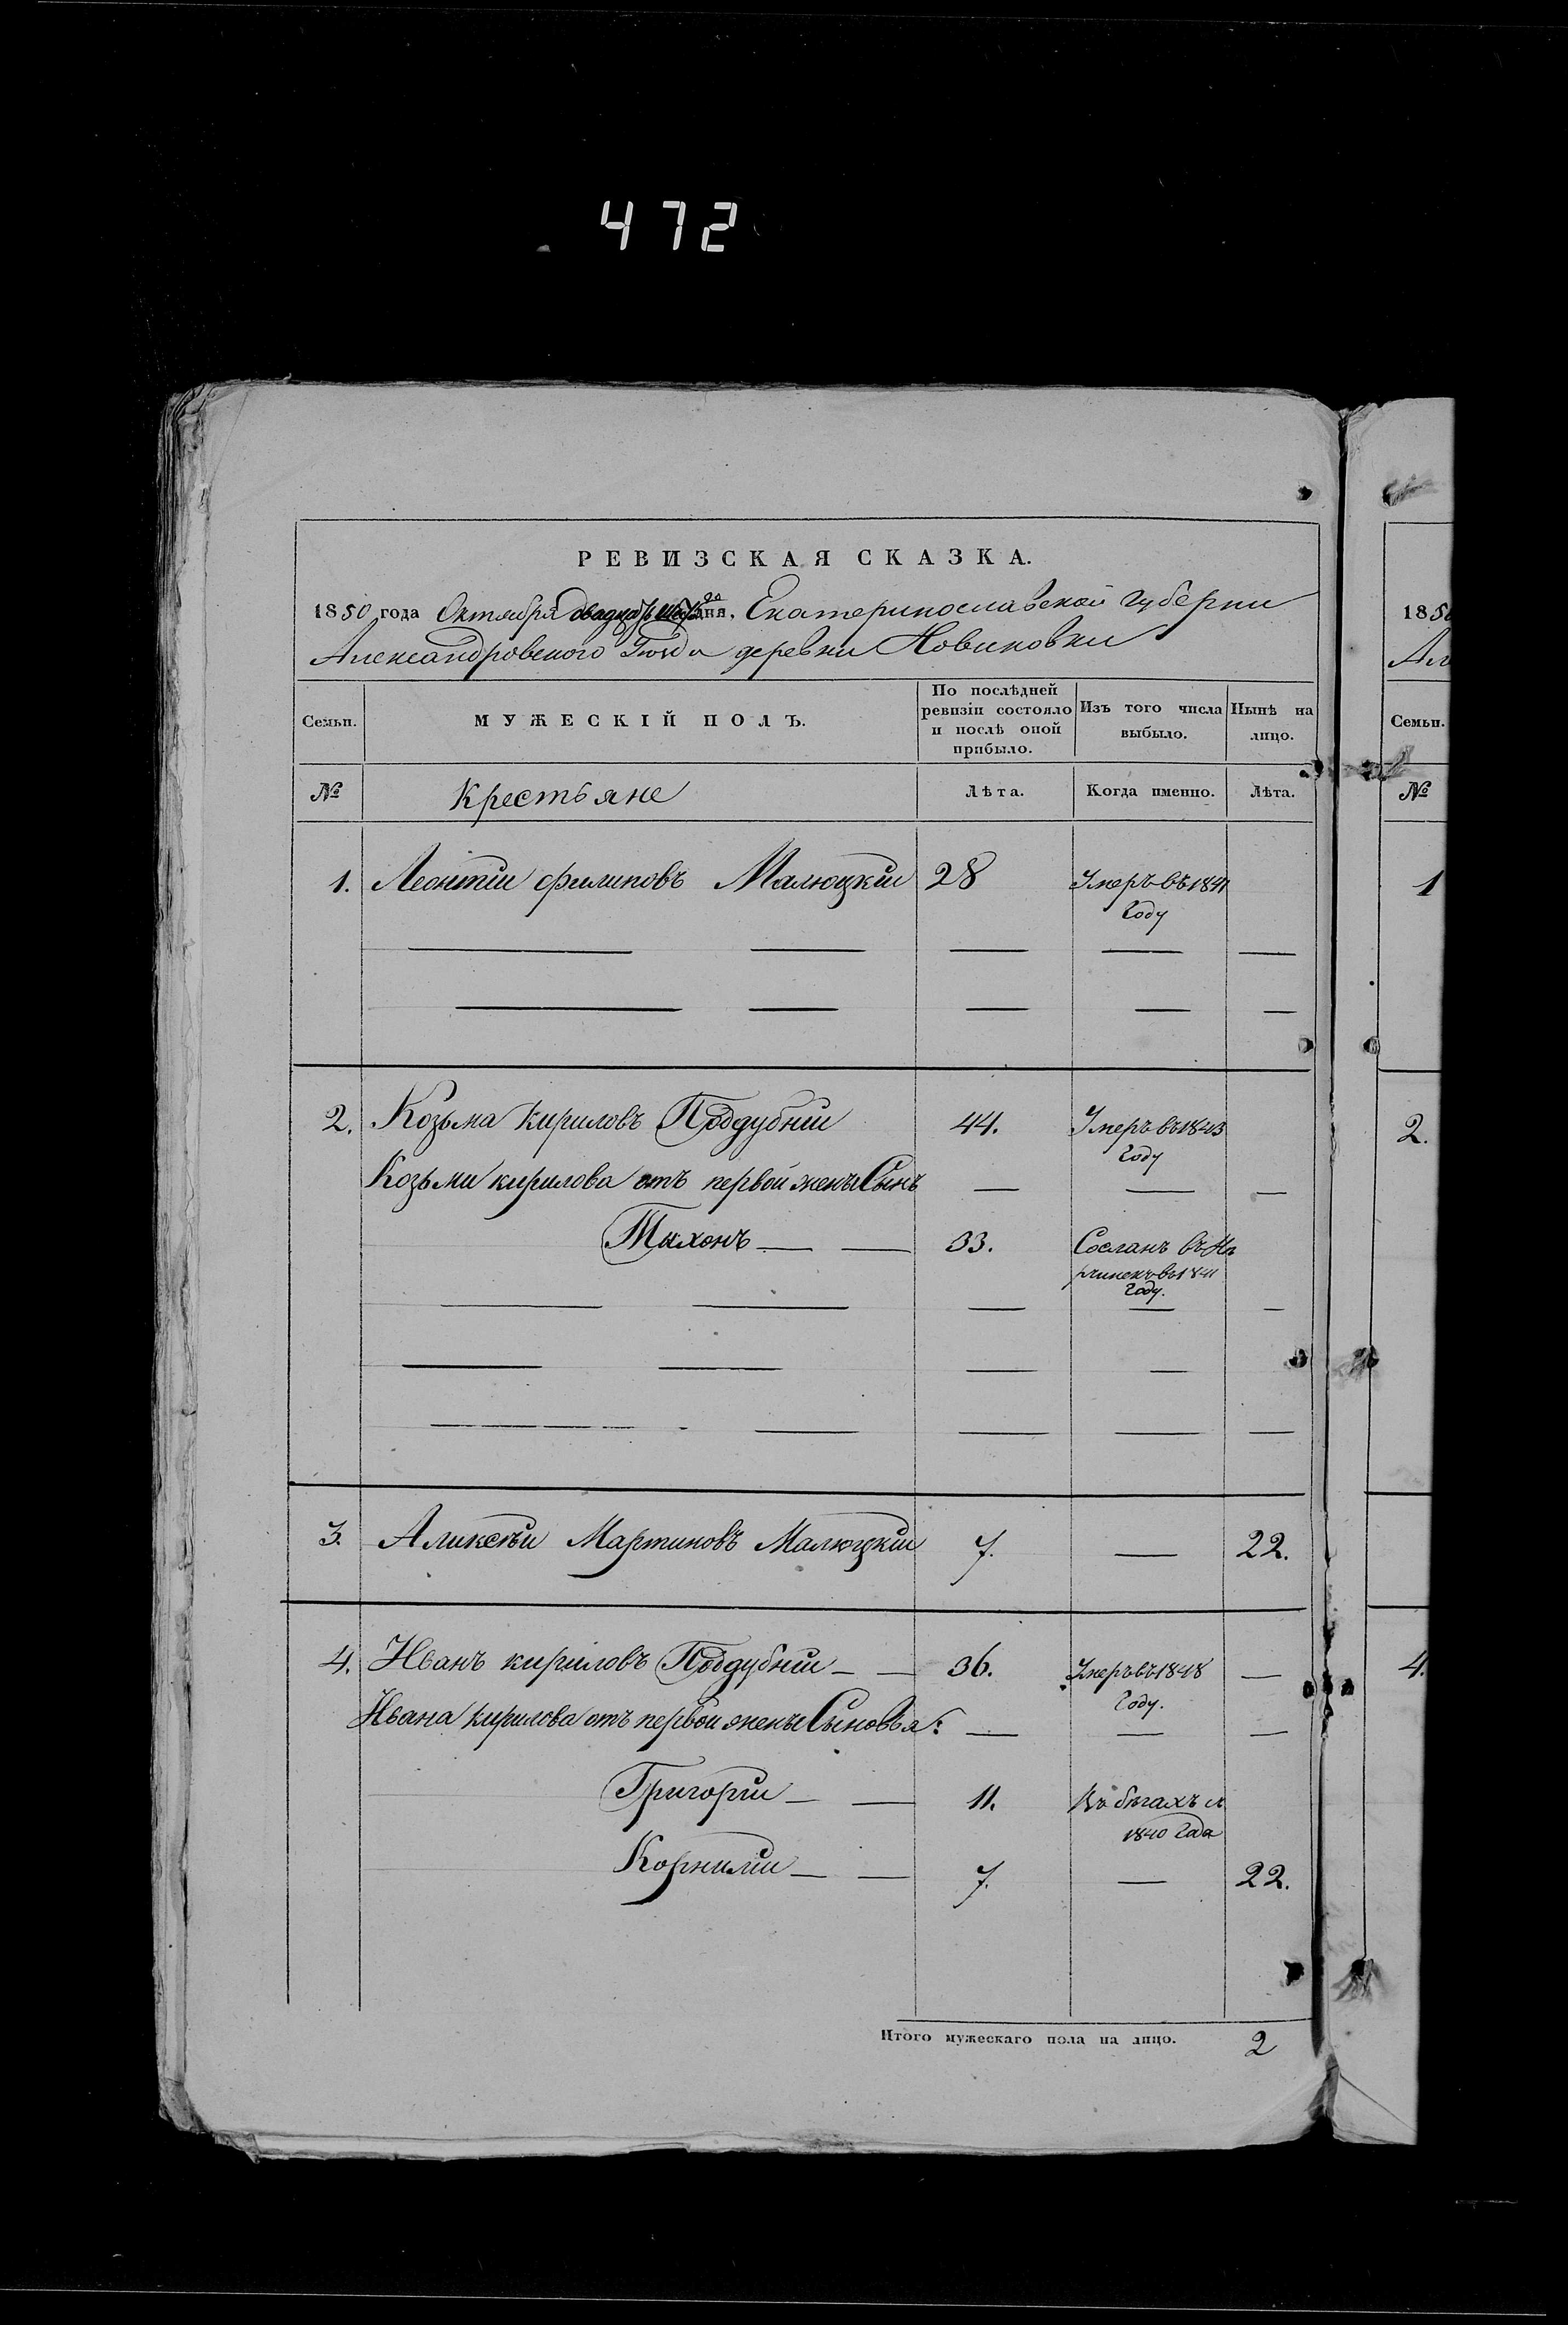 472
РЕВИЗСКАЯ СКАЗКА.
1850 года Октября двадцать дня. Екатеринославской губернии
Александровского уезда деревни Новиковки
Семьи. МУЖЕСКІЙ ПОЛЪ. По послѣдней ревизіи состояло и послѣ оной прибыло. Изъ того числа выбыло. Нынѣ на лицо.
№ Крестьяне Лѣта. Когда именно. Лѣта.
1. Леонтіи филиповъ Малюцкіи 28 Умеръ въ 1841
Году
2. Козьма Кириловъ Поддубніи 44. Умеръ въ 1843
Году
Козьми кирилова отъ первои жены Сынъ — — —
Тихонъ — — 33. Сосланъ въ Не
рчинскъ въ 1841
Году.
3. Аликсѣи Мартиновъ Малюцкіи 7. — 22.
4. Иванъ кириловъ Поддубніи — — 36. Умеръ въ 1848 —
Году.
Ивана Кирилова отъ первои жены Сыновья: — — —
Григоріи — — 11. Въ бѣгахъ съ
1840 Года
Корниліи — — 7. — 22.
Итого мужескаго пола на лицо. 2
185
Ал
Семьи.
№
1
2.
4.